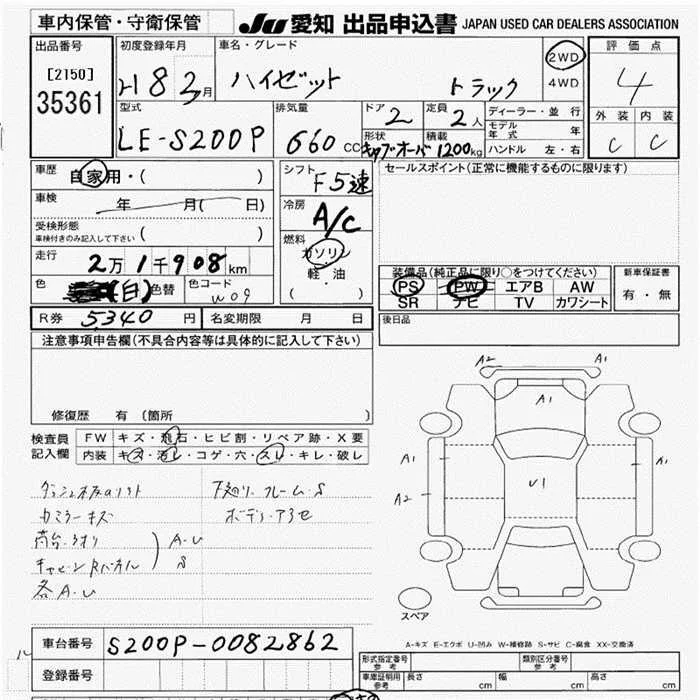 車内保管・守衛保管
JU 愛知 出品申込書 JAPAN USED CAR DEALERS ASSOCIATION
出品番号
[2150]
35361
初度登録年月
H8 3月
車名・グレード
ハイゼット トラック
2WD
4WD
評価点
4
外装 内装
C C
型式
LE-S200P
排気量
660 CC
ドア
2
定員
2人
形状
キャブオーバ
積載
1200kg
ディーラー・並行
モデル年式 年
ハンドル 左・右
車歴
自家用・( )
車検
年 月( 日)
受検形態
車検付きのみ記入して下さい ( )
走行
2万1千908km
色
(白) 色替
色コード
W09
シフト
F5速
冷房
A/C
燃料
ガソリン
軽・油
( )
セールスポイント(正常に機能するものに限ります)
装備品(純正品に限り○をつけてください)
PS PW エアB AW
SR ナビ TV カワシート
新車保証書
有・無
後日品
R券 5340円
名変期限 月 日
注意事項申告欄(不具合内容等は具体的に記入して下さい)
修復歴 有 (箇所 )
検査員記入欄
FW キズ・飛石・ヒビ割・リペア跡・X要
内装 キズ・汚レ・コゲ・穴・スレ・キレ・破レ
下廻り.フレーム.S
カミラーキズ ボデー.アセ
荷台.アオリ A.U
S
各A.U
A2 A1
A1
A1 U1 A1
A2
スペア
A-キズ E-エクボ U-凹み W-補修跡 S-サビ C-腐食 XX-交換済
車台番号 S200P-0082862
登録番号
形式指定番号 参考
類別区分番号 参考
車庫証明用 参考
長さ cm 幅 cm 高さ cm